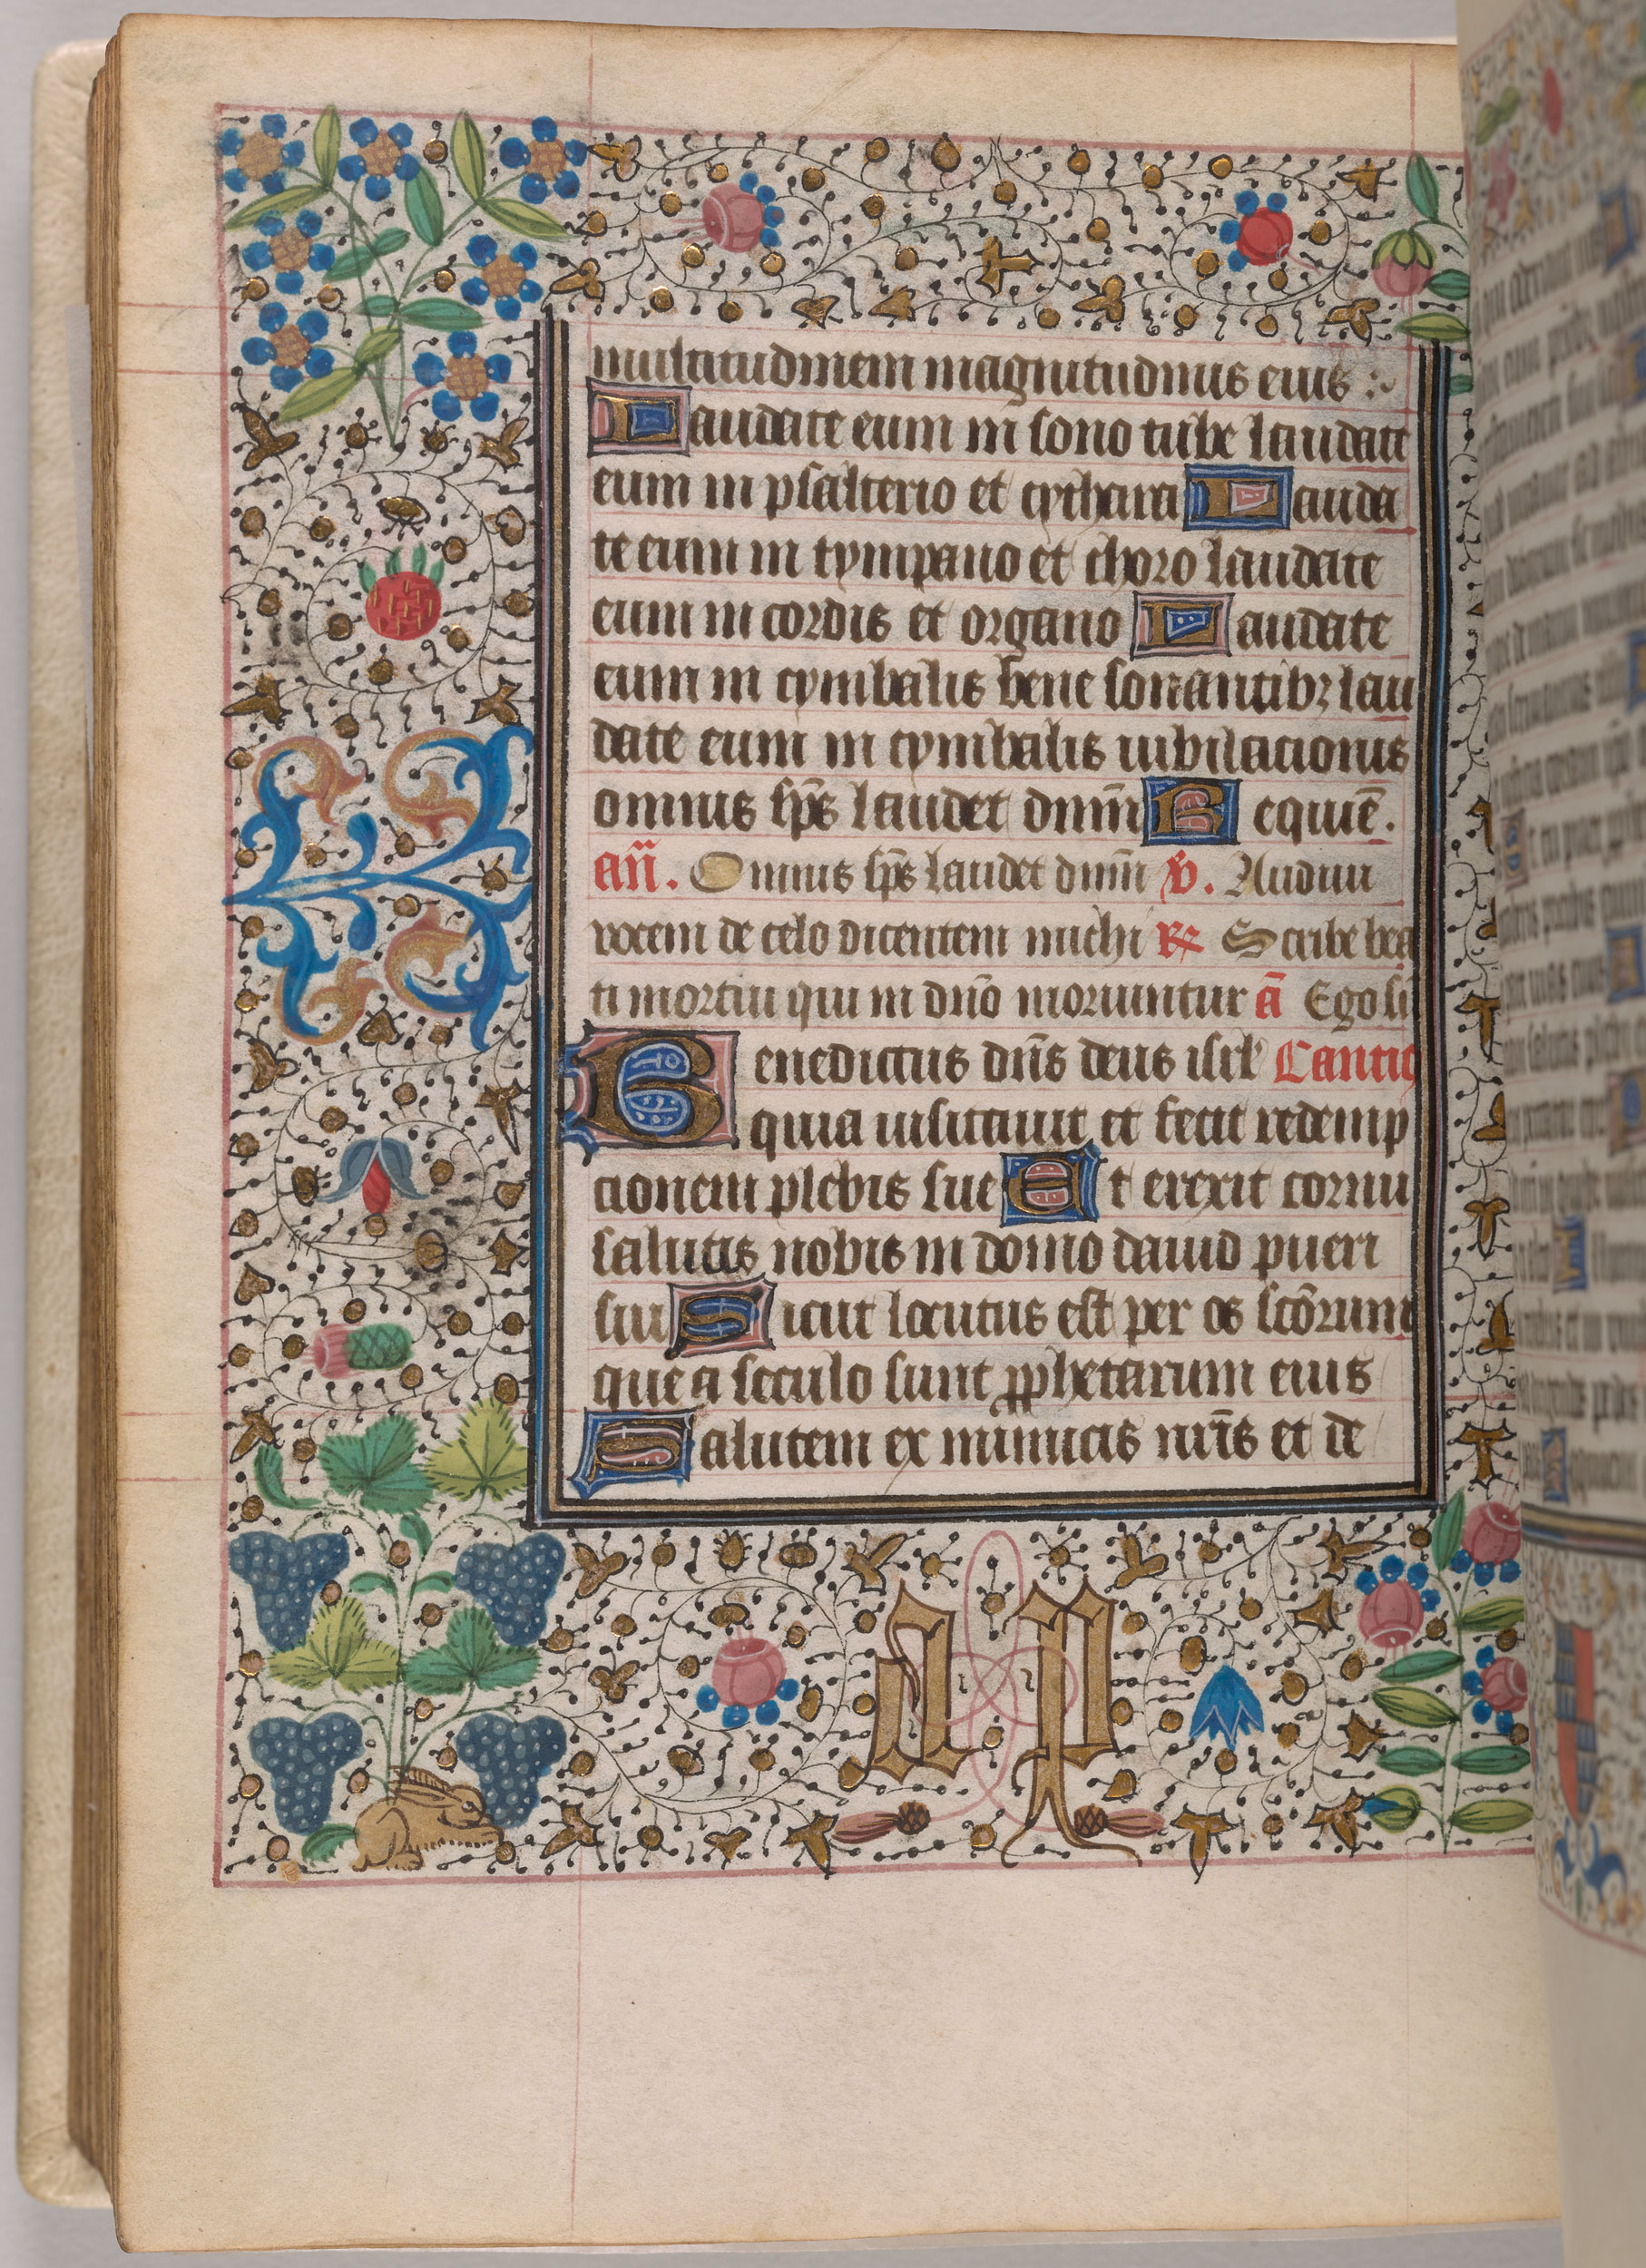 multitudinem magnitudinis eius :
Laudate eum in sono tube laudate
eum in psalterio et cythara Lauda
te eum in tympano et choro laudate
eum in cordis et organo Laudate
eum in cymbalis bene sonantibꝫ lau
date eum in cymbalis iubilacionis
omnis sp̄s laudet dnm̄ Requiē.
an̄. Omnis sp̄s laudet dnm̄ v̄. Audiui
vocem de celo dicentem michi ꝶ Scribe bea
ti mortui qui in dn̄o moriuntur ā Ego sū
Benedictus dn̄s deus isrl̕ Cantic
quia uisitauit et fecit redemp
cionem plebis sue Et erexit cornu
salutis nobis in domo dauid pueri
sui Sicut locutus est per os sc̄orum
que a seculo sunt ꝓphetarum eius
Salutem ex inimicis nr̄is et de